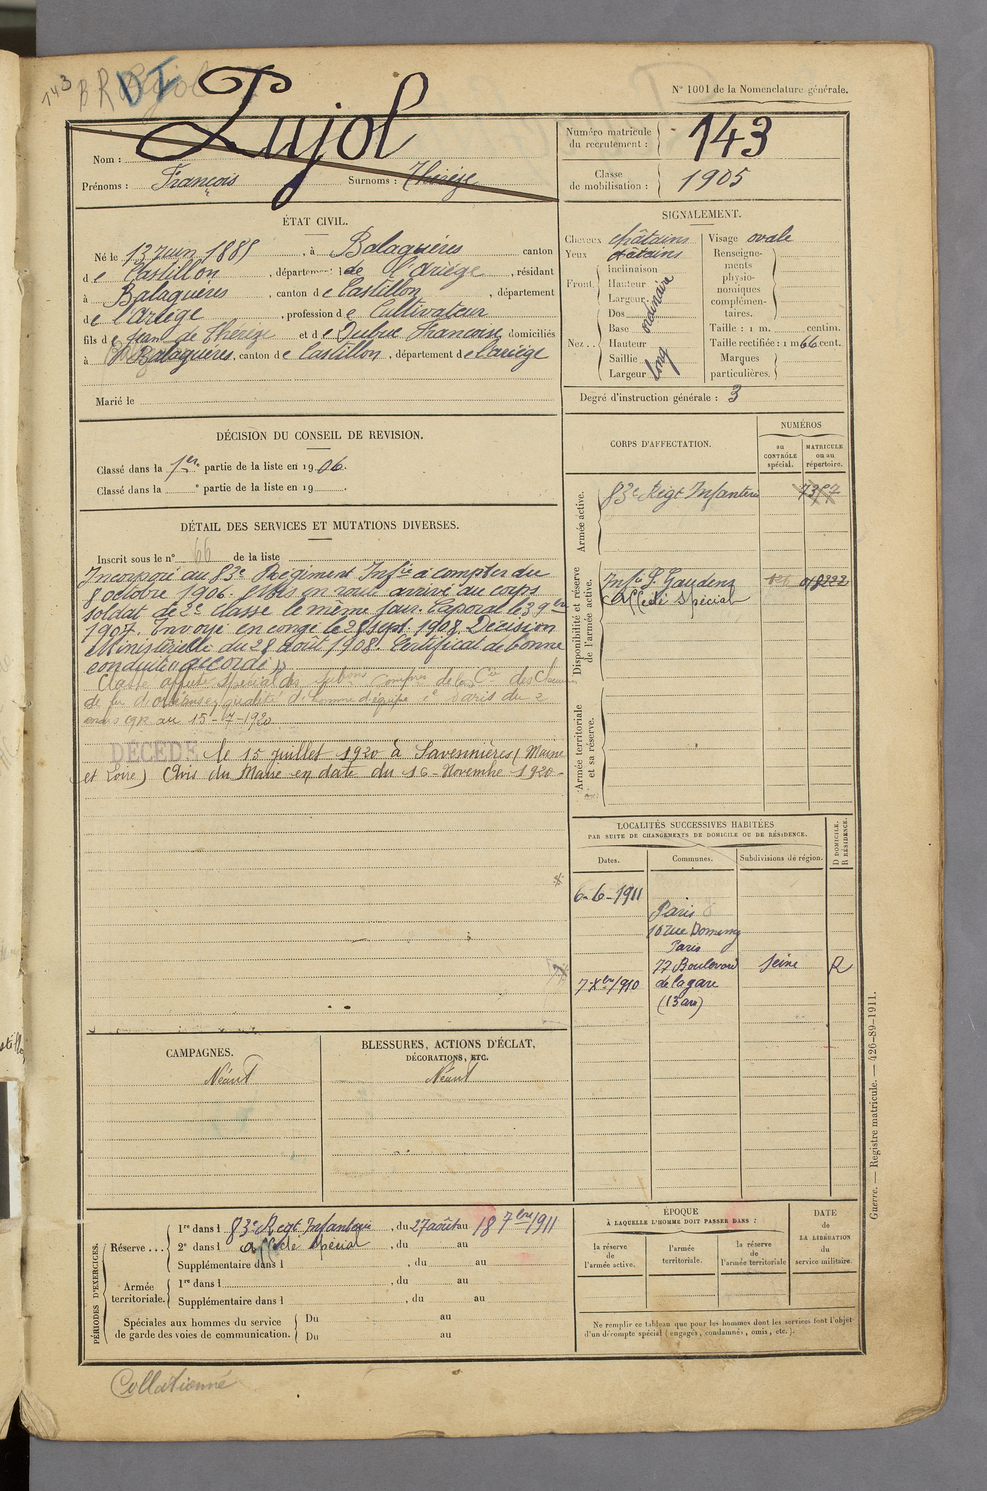 143 BR DI
N° 1001 de la Nomenclature générale.
Nom : Pujol
Prénoms : François Surnoms : Thérèze
Numéro matricule du recrutement : 143
Classe de mobilisation : 1905
ÉTAT CIVIL.
Né le 13 juin 1885, à Balaguères canton
de Castillon, département de l'Ariège, résidant
à Balaguères, canton de Castillon, département
de l'Ariège, profession de Cultivateur
fils de Jean de Thérèze et de Dubuc Françoise, domiciliés
à Balaguères, canton de Castillon, département de l'ariège
Marié le
SIGNALEMENT.
Cheveux châtains
Yeux châtains
Front. inclinaison
Hauteur
Largeur
ordinaire
Nez... Dos
Base
Hauteur
Saillie
Largeur
long
Visage ovale
Renseignements physionomiques complémentaires.
Taille : 1 m. centim.
Taille rectifiée : 1 m 66 cent.
Marques particulières.
Degré d'instruction générale : 3
DÉCISION DU CONSEIL DE REVISION.
Classé dans la 1re partie de la liste en 1906.
Classé dans la e partie de la liste en 19
DÉTAIL DES SERVICES ET MUTATIONS DIVERSES.
Inscrit sous le n° 66 de la liste
Incorporé au 83e Régiment Infie à compter du
8 octobre 1906. Mis en route arrivé au corps
soldat de 2e classe le même jour. Caporal le 3 9bre
1907. Envoyé en congé le 28 sept. 1908. Décision
Ministérielle du 28 août 1908. Certificat de bonne
conduite "accordé"
Classé affecté spécial des subons Compie de la Cie des Chemins
de fer d'Orléans, qualité d'homme d'équipe à Paris du 2
mars 1912 au 15-7-1920
DÉCÉDÉ le 15 juillet 1920 à Savennières (Maine
et Loire) Avis du Maire en date du 16 Novembre 1920
CORPS D'AFFECTATION.
NUMÉROS
au CONTRÔLE spécial.
MATRICULE ou au répertoire.
Armée active.
83e Régt Infanterie 7397
Disponibilité et réserve de l'armée active.
Infie St Gaudens 018222
Affecté Spécial
Armée territoriale et sa réserve.
LOCALITÉS SUCCESSIVES HABITÉES
PAR SUITE DE CHANGEMENTS DE DOMICILE OU DE RÉSIDENCE.
Dates. Communes. Subdivisions de région. D DOMICILE. R RÉSIDENCE.
6-6-1911 Paris
Paris
7-Xbre 1910 77 Boulevard de la gare (13 arr) Seine R
CAMPAGNES.
Néant
BLESSURES, ACTIONS D'ÉCLAT,
DÉCORATIONS, ETC.
Néant
PÉRIODES D'EXERCICES.
Réserve... 1re dans l 83e Regt Infanterie, du 27 août au 18 7bre 1911
2e dans l affecté Spécial, du au
Supplémentaire dans l , du au
Armée territoriale. 1re dans l , du au
Supplémentaire dans l , du au
Spéciales aux hommes du service
de garde des voies de communication. Du au
Du au
ÉPOQUE
À LAQUELLE L'HOMME DOIT PASSER DANS :
la réserve de l'armée active. l'armée territoriale. la réserve de l'armée territoriale
DATE de LA LIBÉRATION du service militaire.
Ne remplir ce tableau que pour les hommes dont les services font l'objet
d'un décompte spécial (engagés, condamnés, omis, etc.).
Guerre. — Registre matricule. — 426-89-1911.
Collationné